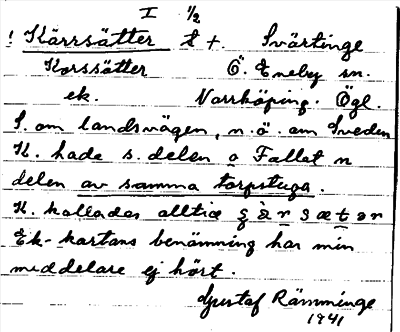 I 1/2
! Kärrsätter t +. Svärtinge
Korssätter Ö. Eneby sn.
ek. Norrköping. Ögl.
S. om landsvägen, n.ö. om Sveden
K. hade s. delen o Fallet n
delen av samma torpstuga.
K. kallades alltid
Ek-kartans benämning har min
meddelare ej hört.
Gustaf Rämminge
1941